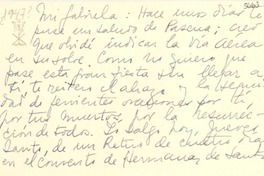 [1947?]
Mi Gabriela: Hace unos días te
puse un saludo de Pascua; creo
que olvidé indicar la vía aérea
en su sobre. Como no quiero que
pase esta gran fiesta sin llegar a
Ti, te reitero el abrazo y la seguri-
dad de fervientes oraciones por ti,
por tus muertos, por la resurrec-
ción de todos. Yo salgo hoy, Jueves
Santo, de un Retiro de cuatro días
en el convento de Hermanas de Santo